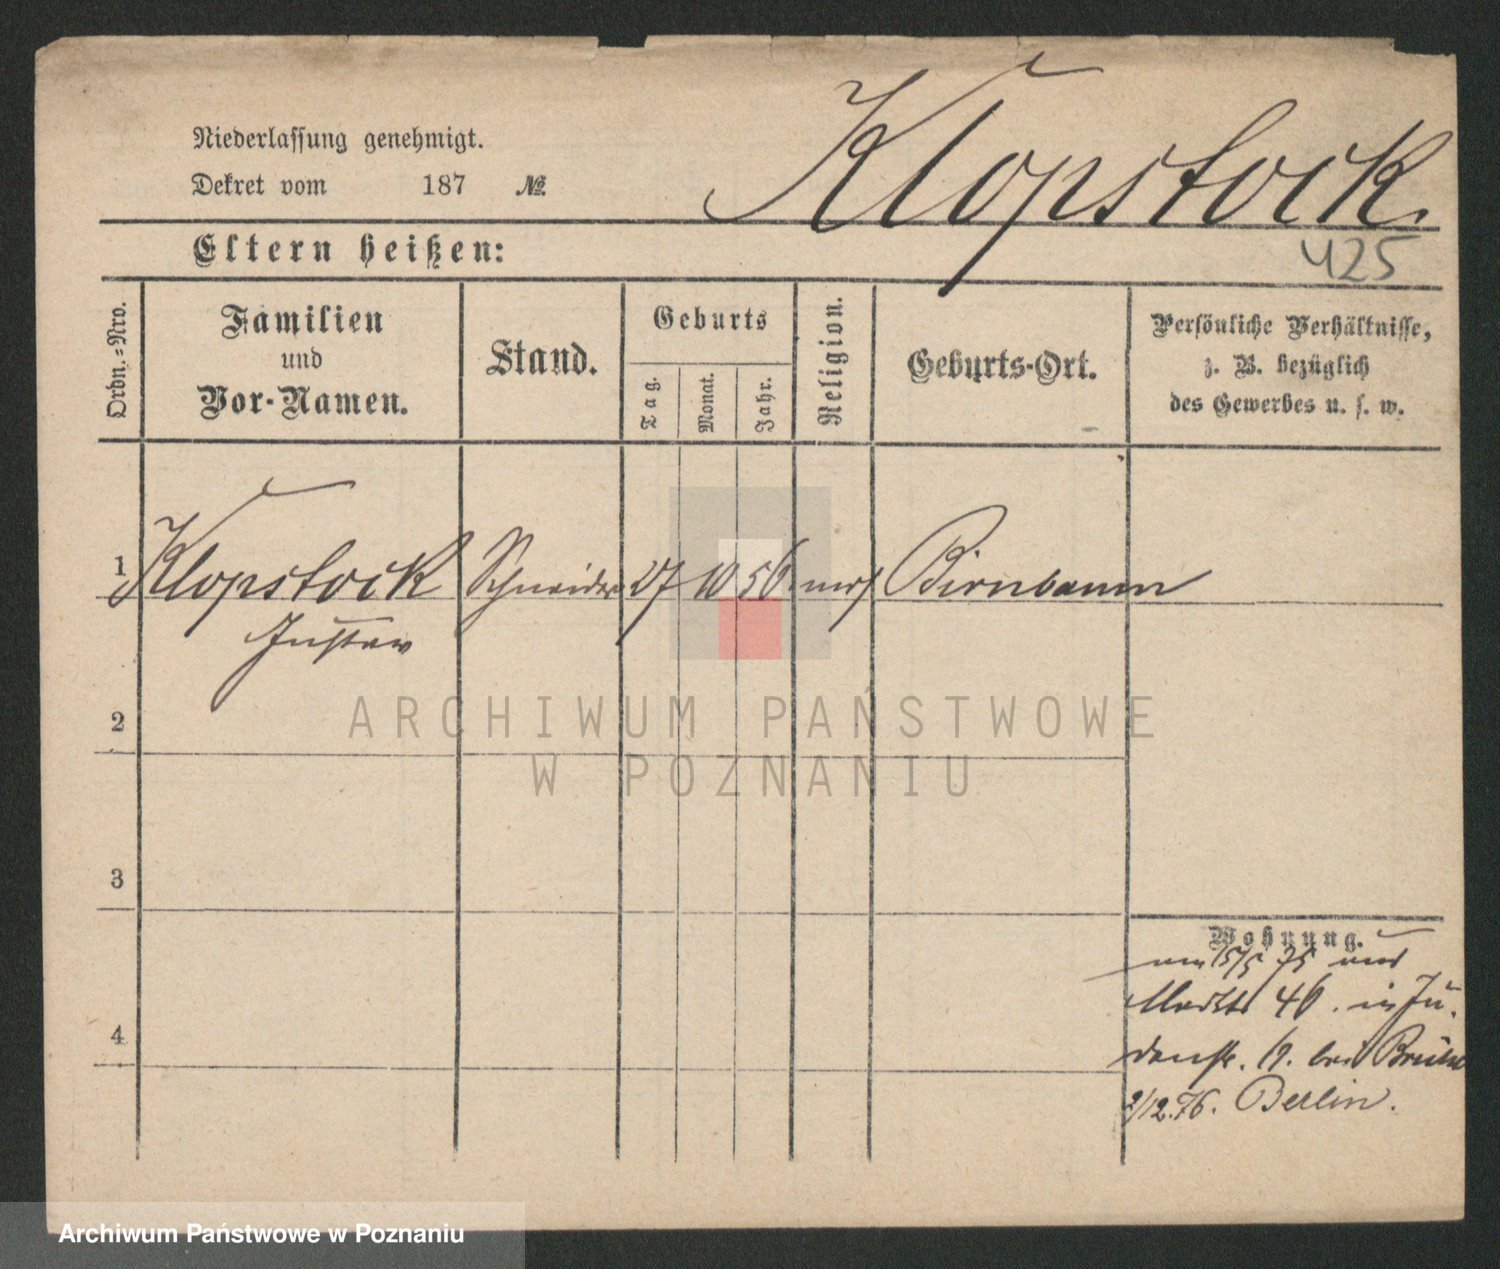 Klopstock
Niederlassung genehmigt.
Dekret vom 187 №
425
Eltern heißen:
Ordn.=Nro.
Familien
und
Vor-Namen.
Stand.
Geburts
Tag.
Monat.
Jahr.
Religion.
Geburts-Ort.
Persönliche Verhältnisse,
z. B. bezüglich
des Gewerbes u. s. w.
1 Klopstock Schneider 27 10 56 mos Birnbaum
Gustav
2
3
4
Wohnung.
15/5 75
Markt 46. in Ju-
denstr. bei
2/12.76. Berlin.
ARCHIWUM PAŃSTWOWE
W POZNANIU
Archiwum Państwowe w Poznaniu